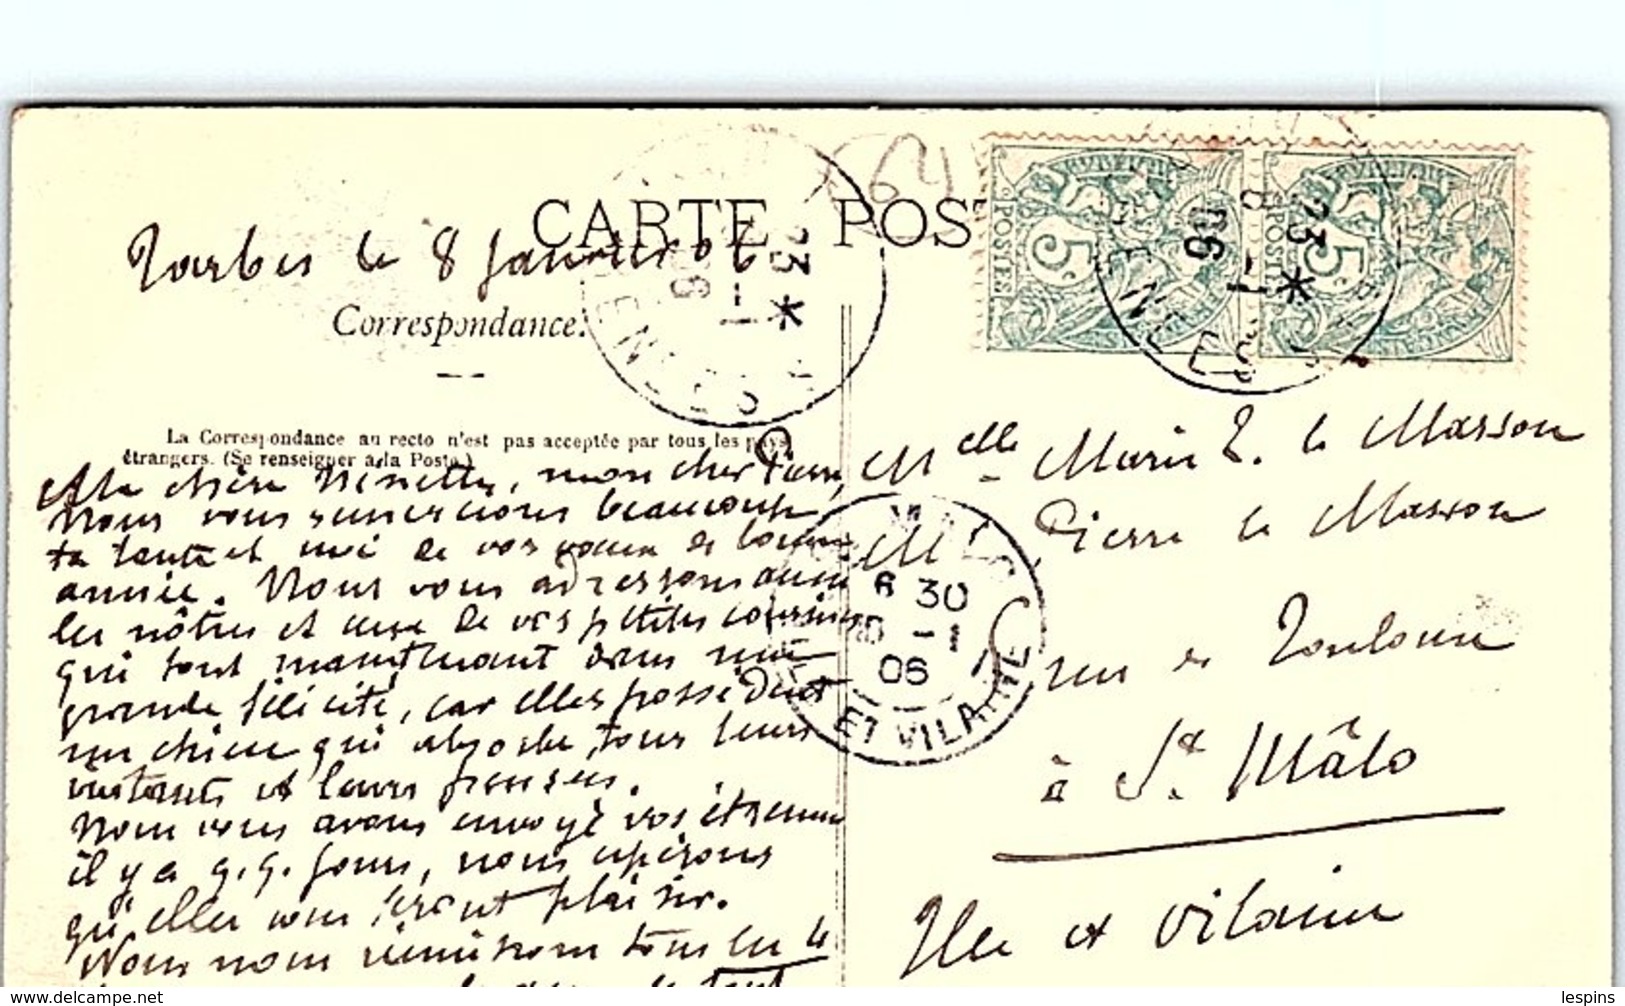 CARTE POST
(64
Tarbes le 8 Janvier 06
Correspondance.
La Correspondance au recto n'est pas acceptée par tous les pays
étrangers. (Se renseigner à la Poste.)
Ma chère Ninette, mon cher Pierre,
Nous vous remercions beaucoup
ta tante et moi de vos voeux de bonne
année. Nous vous adressons aussi
les nôtres et ceux de vos petites cousines
qui sont maintenant dans une
grande félicité, car elles possèdent
un chien qui absorbe tous leurs
instants et leurs pensées.
Nous vous avons envoyé vos étrennes
il y a q.q. jours, nous espérons
qu'elles vous feront plaisir.
Nous nous réunissons tous les 4
Melle Marie L. le Masson
M. Pierre le Masson
rue de Toulouse
à St. Mâlo
Ille et Vilaine
5c POSTES
5c POSTES
23 *
8 -1
06
23 *
-1
06
6 30
-1
06
ET VILAINE
lespins